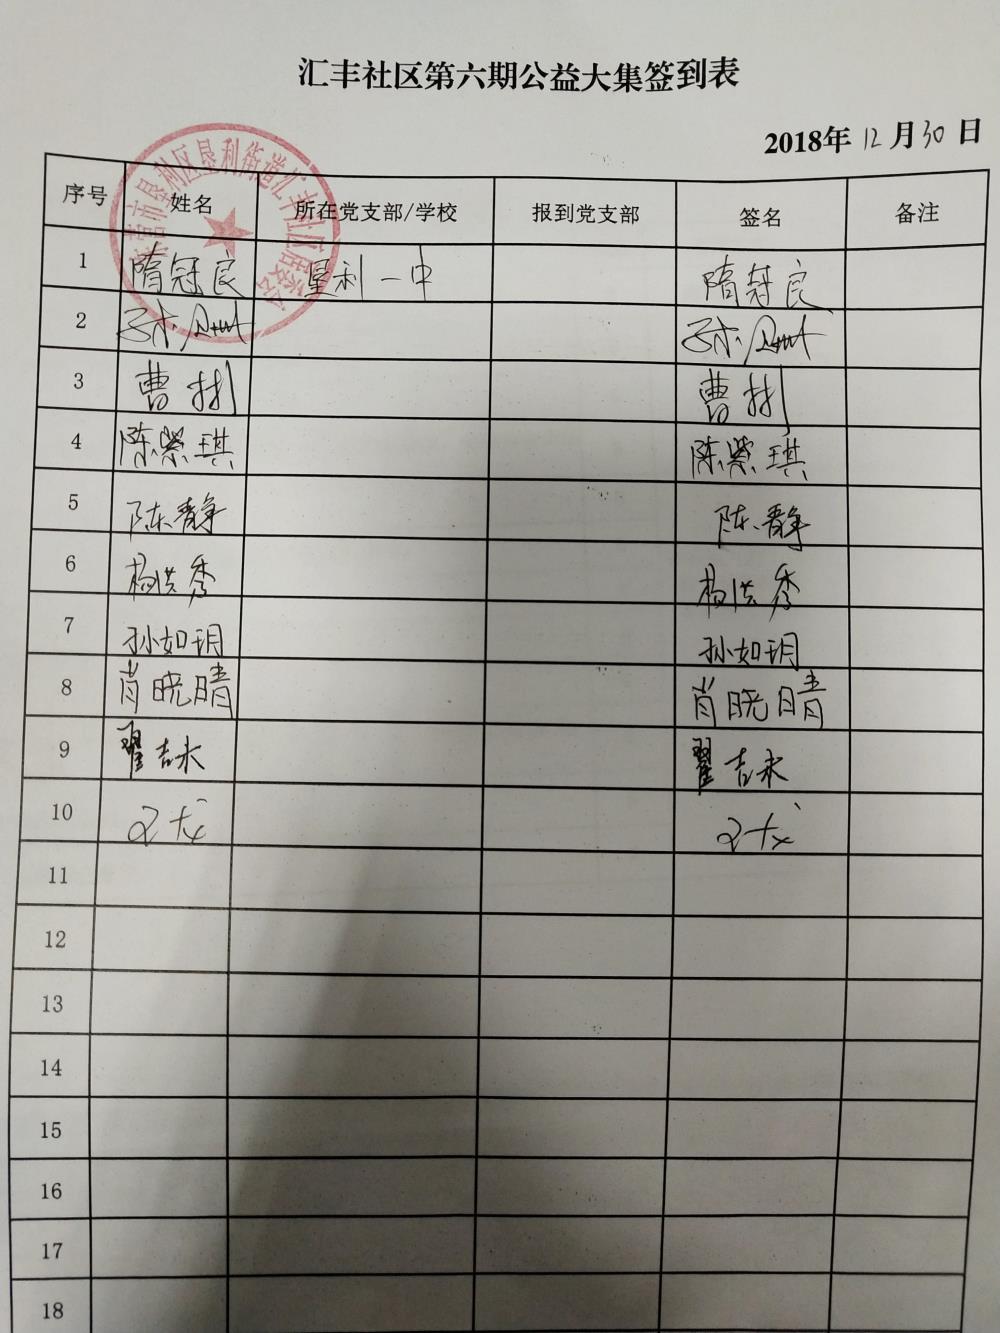 汇丰社区第六期公益大集签到表
2018年 12月30日
序号 姓名 所在党支部/学校 报到党支部 签名 备注
1 隋冠良 垦利一中 隋冠良
2
3 曹彬 曹彬
4 陈紫琪 陈紫琪
5 陈静 陈静
6 杨洪秀 杨洪秀
7 孙如玥 孙如玥
8 肖晓晴 肖晓晴
9 翟吉永 翟吉永
10
11
12
13
14
15
16
17
18
东营市垦利区垦利街道汇丰社区居委会